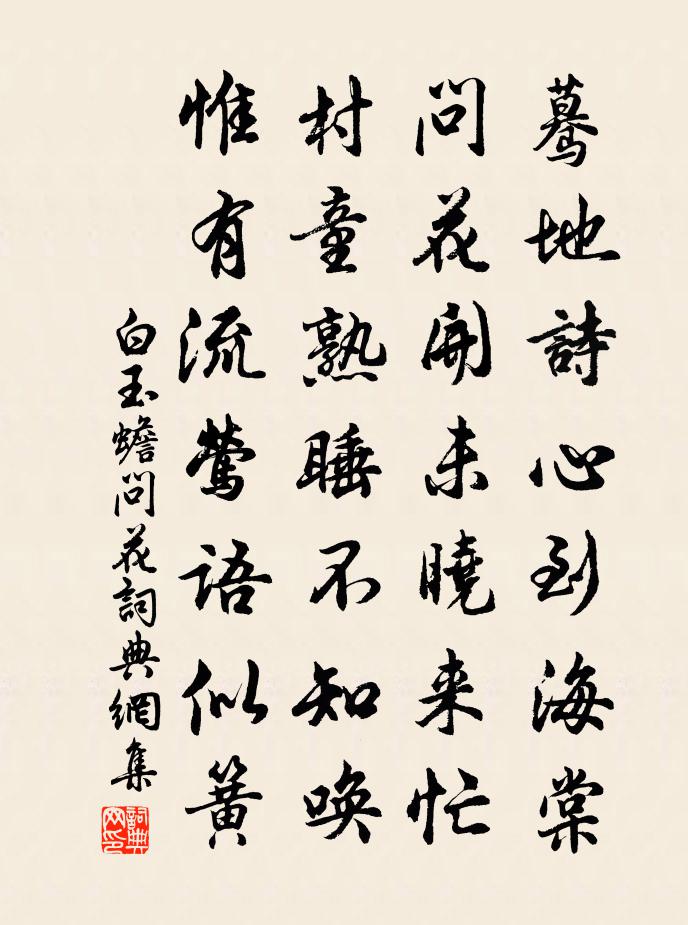 驀地詩心到海棠
問花開未曉来忙
村童熟睡不知喚
惟有流鶯語似簧
白玉蟾問花詞典網集
詞典网印